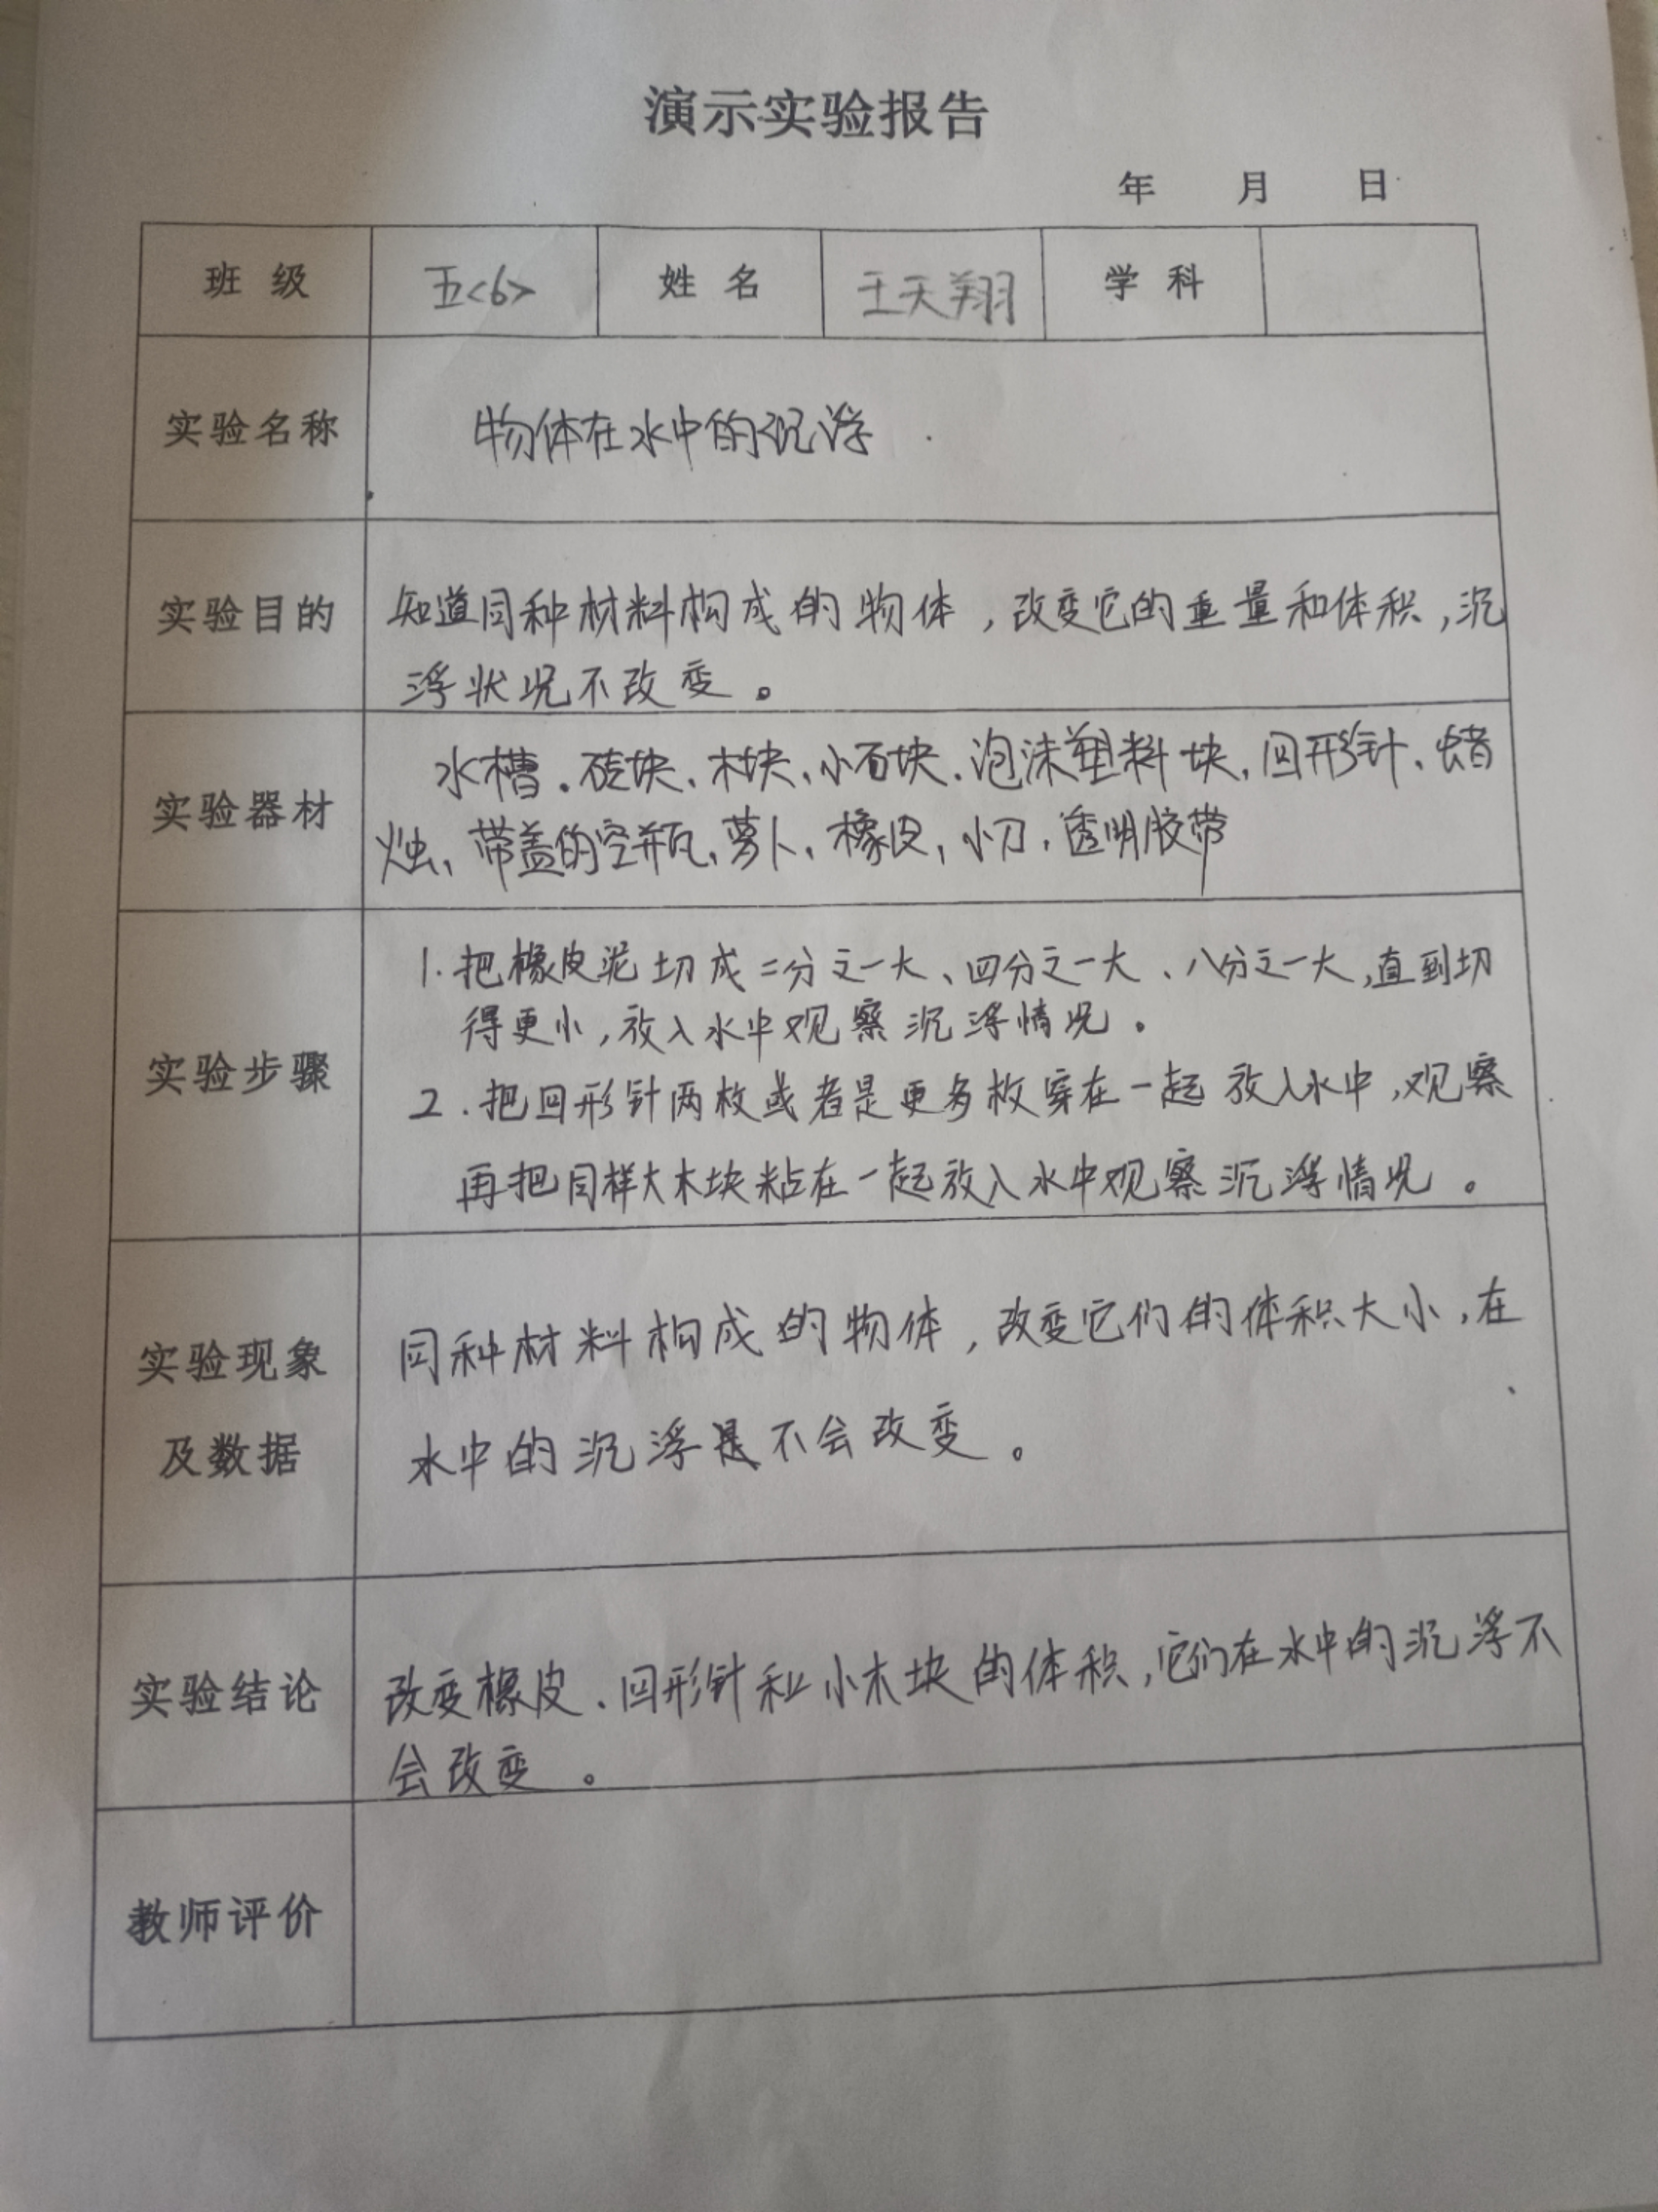 演示实验报告
年 月 日
班 级 五<6> 姓 名 王天翔 学 科
实验名称 物体在水中的沉浮
实验目的 知道同种材料构成的物体，改变它的重量和体积，沉
浮状况不改变。
实验器材 水槽、砖块、木块、小石块、泡沫塑料块、回形针、蜡
烛、带盖的空瓶、萝卜、橡皮、小刀、透明胶带
实验步骤 1.把橡皮泥切成二分之一大、四分之一大、八分之一大，直到切
得更小，放入水中观察沉浮情况。
2.把回形针两枚或者是更多枚穿在一起放入水中，观察
再把同样大木块粘在一起放入水中观察沉浮情况。
实验现象
及数据
同种材料构成的物体，改变它们的体积大小，在
水中的沉浮是不会改变。
实验结论 改变橡皮、回形针和小木块的体积，它们在水中的沉浮不
会改变。
教师评价